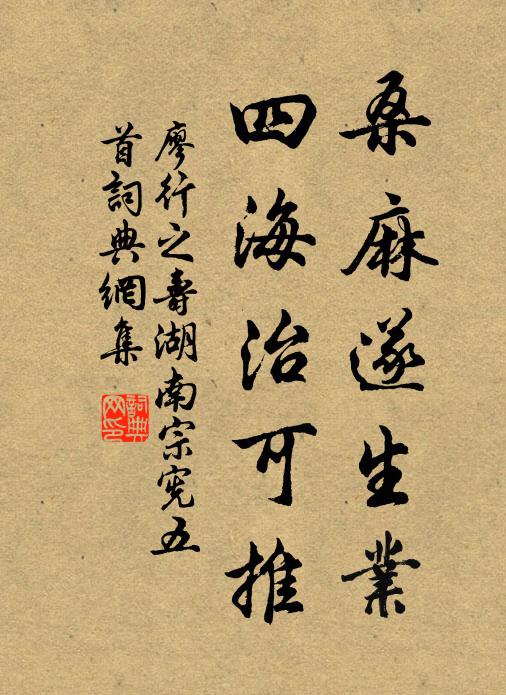 桑麻遂生業
四海治可推
廖行之壽湖南宗宪五
首詞典網集
詞典网印